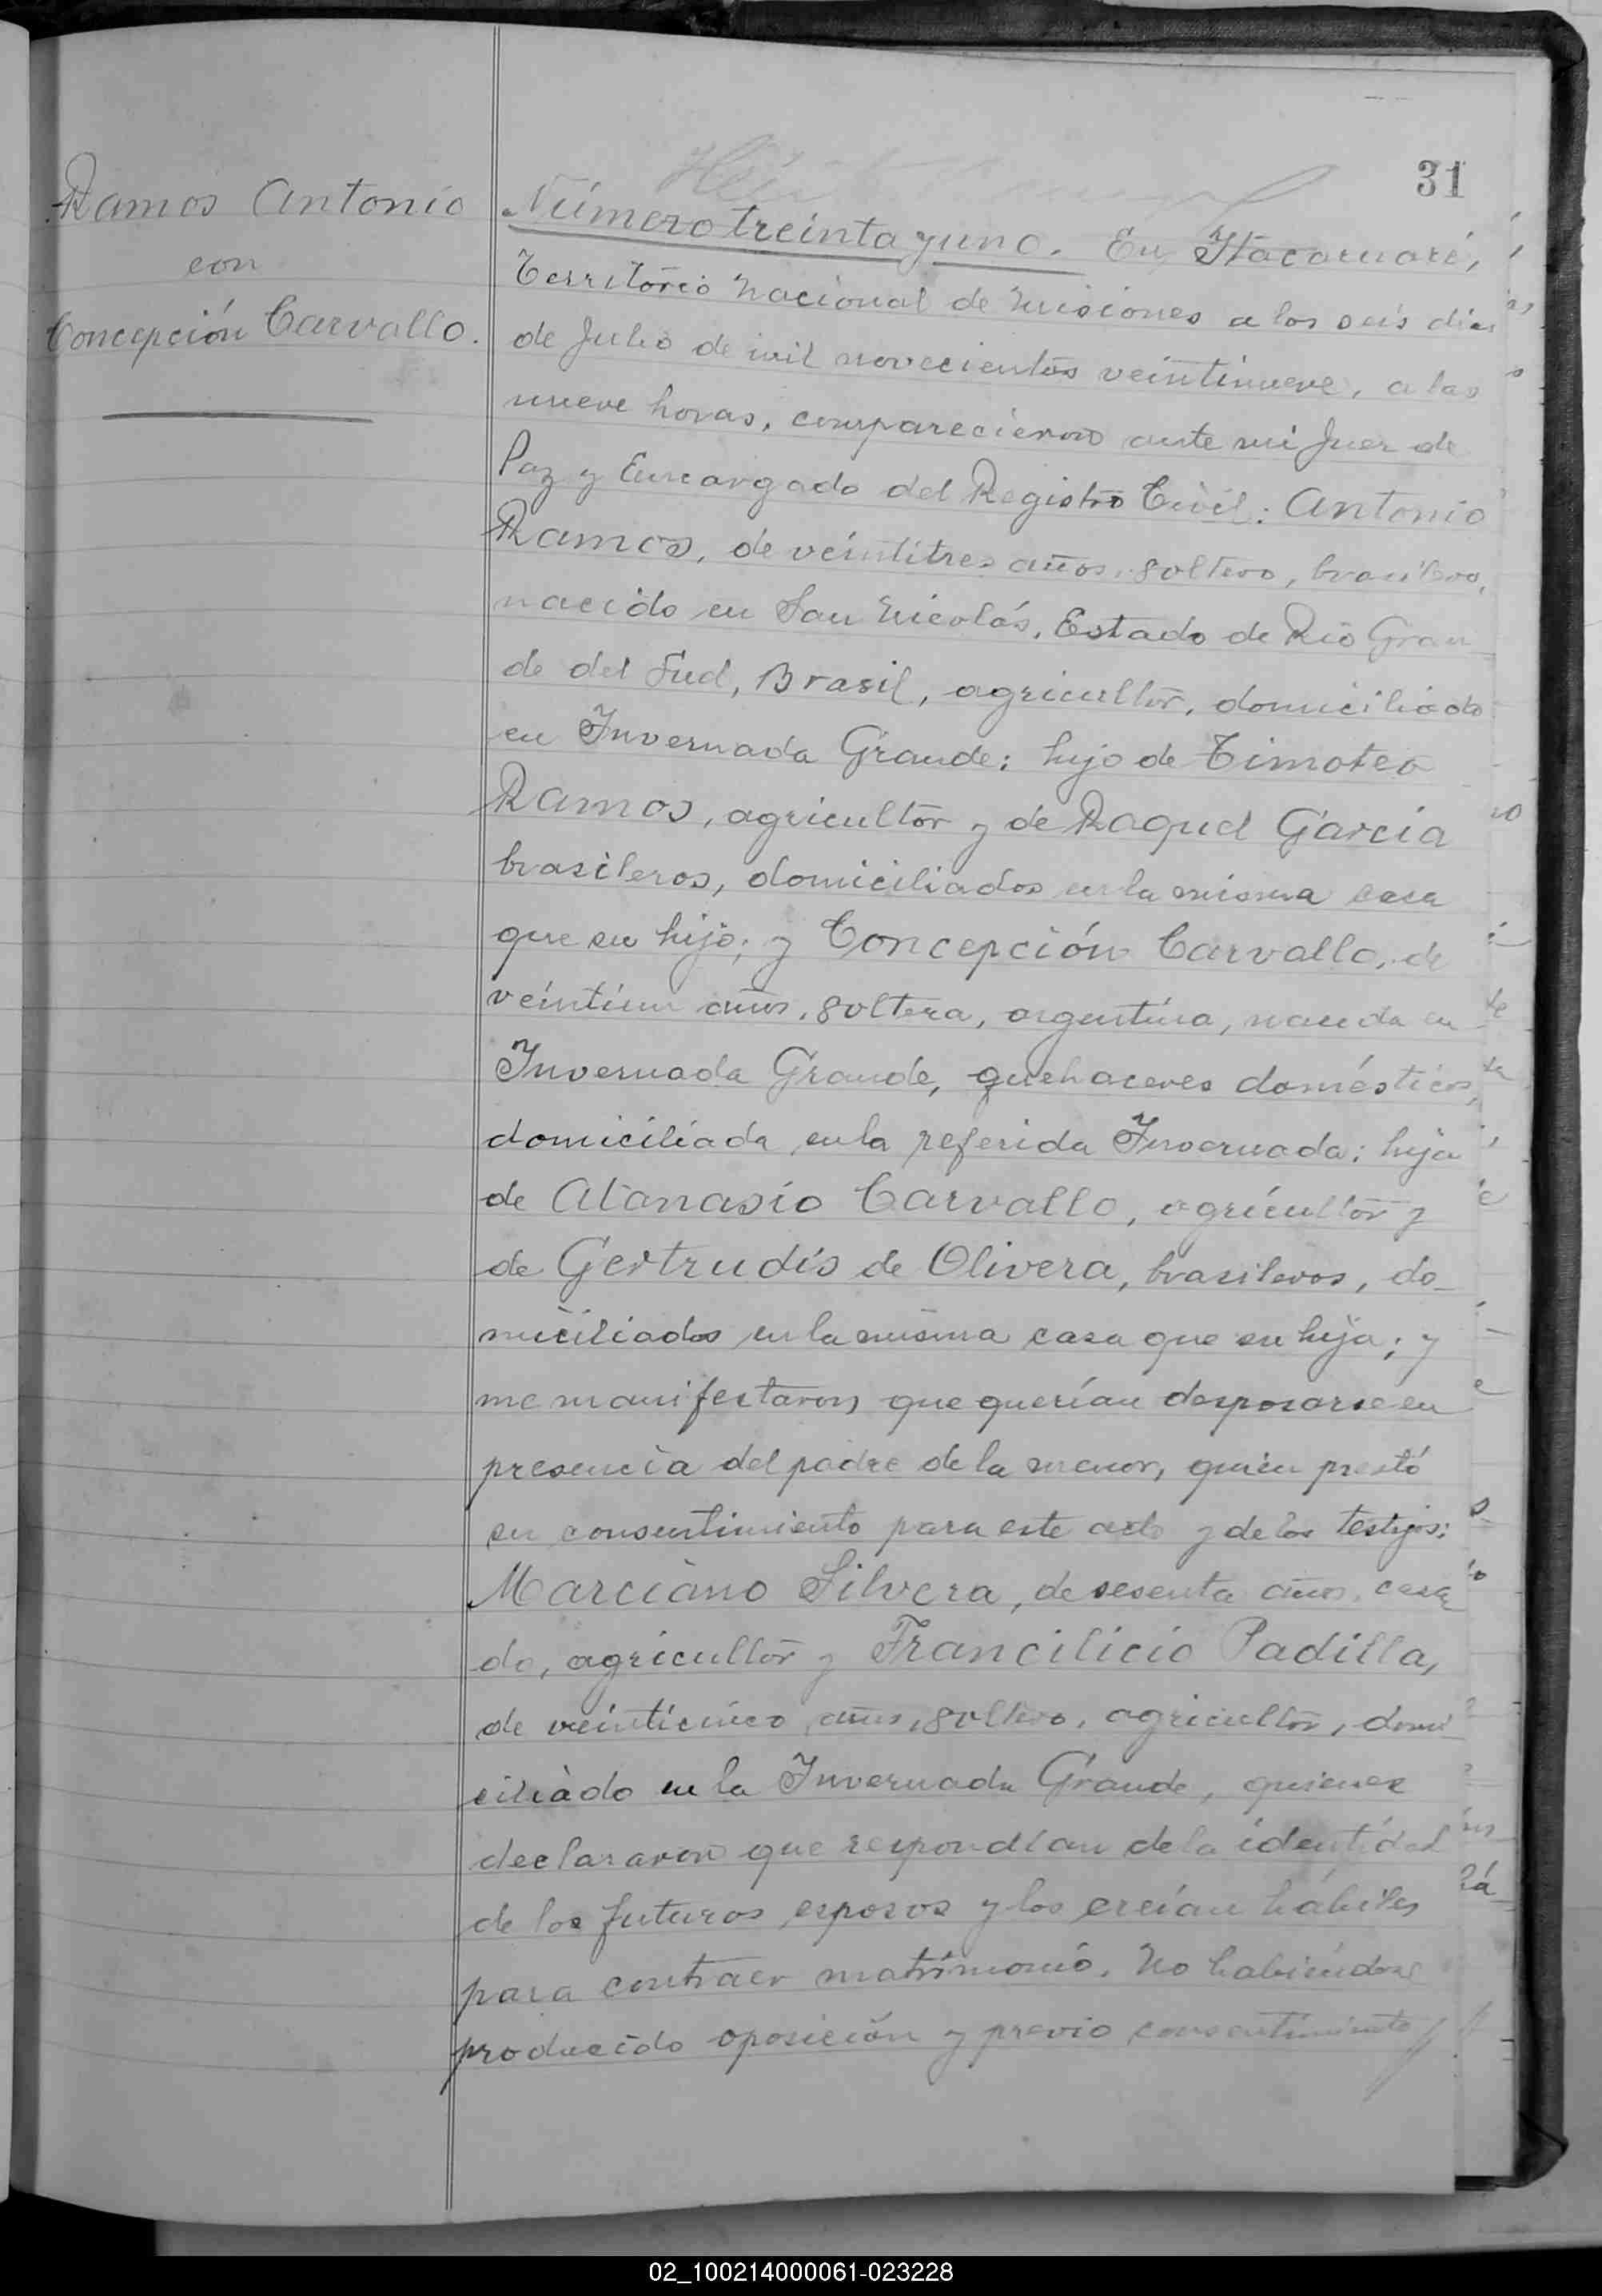 31
Ramos Antonio
con
Concepción Carvallo.
Número treinta y uno. En Itacaruaré,
Territorio Nacional de Misiones a los seis días
de Julio de mil novecientos veintinueve, a las
nueve horas, comparecieron ante mi Juez de
Paz y Encargado del Registro Civil: Antonio
Ramos, de veintitres años, soltero, brasilero,
nacido en San Nicolás, Estado de Rio Gran
de del Sud, Brasil, agricultor, domiciliado
en Invernada Grande; hijo de Timoteo
Ramos, agricultor y de Raquel Garcia
brasileros, domiciliados en la misma casa
que su hijo; y Concepción Carvallo, de
veintiun años, soltera, argentina, nacida en
Invernada Grande, quehaceres domésticos,
domiciliada en la referida Invernada; hija
de Atanasio Carvallo, agricultor y
de Gertrudis de Olivera, brasileros, do-
miciliados en la misma casa que su hija; y
me manifestaron que querían desposarse en
presencia del padre de la menor, quien prestó
su consentimiento para este acto y de los testigos:
Marciano Silvera, de sesenta años, casa
do, agricultor y Francilicio Padilla,
de veinticinco años, soltero, agricultor, domi
ciliado en la Invernada Grande, quienes
declararon que respondían de la identidad
de los futuros esposos y los creían hábiles
para contraer matrimonio. No habiéndose
producido oposición y previo consentimiento
02_100214000061-023228